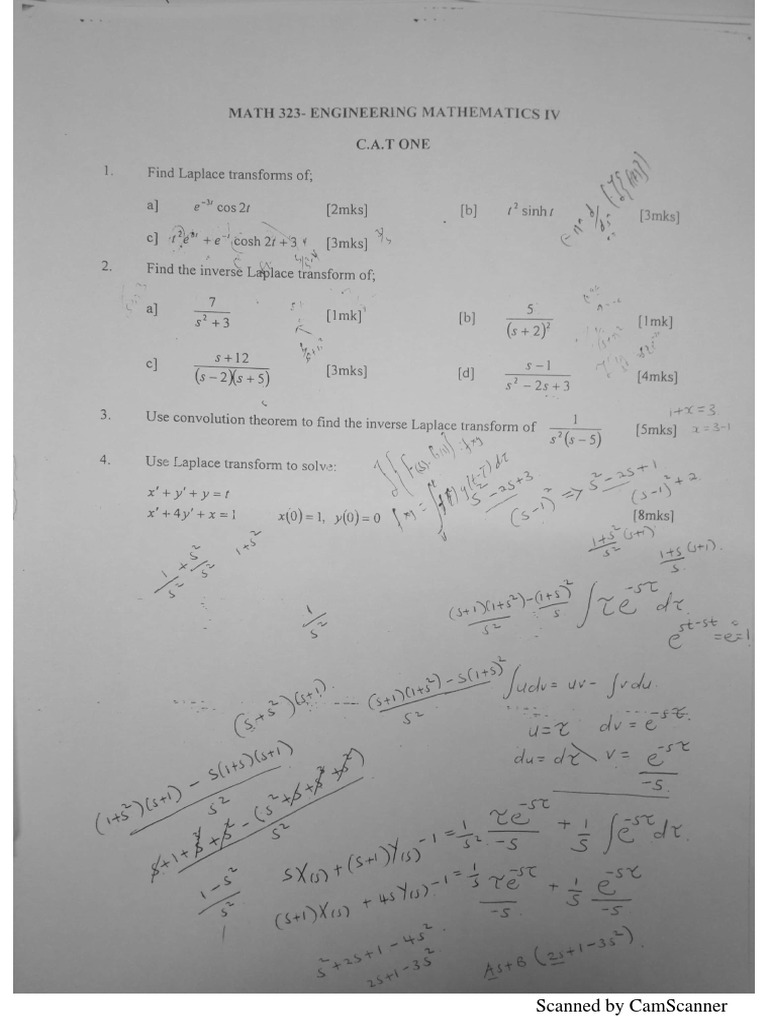 MATH 323- ENGINEERING MATHEMATICS IV
C.A.T ONE
1. Find Laplace transforms of;
a] e^{-3t} cos 2t [2mks] [b] t^2 sinh t [3mks]
c] t^2 e^{3t} + e^{-t} cosh 2t + 3 [3mks]
2. Find the inverse Laplace transform of;
a] 7/(s^2 + 3) [1mk] [b] 5/(s + 2)^2 [1mk]
c] (s + 12)/((s - 2)(s + 5)) [3mks] [d] (s - 1)/(s^2 - 2s + 3) [4mks]
1+x = 3
3. Use convolution theorem to find the inverse Laplace transform of 1/(s^2(s - 5)) [5mks] x = 3-1
4. Use Laplace transform to solve:
x' + y' + y = t
x' + 4y' + x = 1 x(0) = 1, y(0) = 0 [8mks]
s^2 - 2s + 3
(s-1)^2 => s^2 - 2s + 1
(s-1)^2 + 2
1+s^2/s^2 (s+1)
1+s/s (s+1).
1+s^2
1/s^2 + s^2/s^2
1/s^2
(s+1)(1+s^2)/s^2 - (1+s)^2/s ∫τe^{-sτ} dτ
e^{st-st} = e^0 = 1
(s+s^2)(s+1)
(s+1)(1+s^2) - s(1+s)^2 / s^2
∫udv = uv - ∫vdu
u = τ dv = e^{-sτ}
du = dτ v = e^{-sτ}/-s
(1+s^2)(s+1) - s(1+s)(s+1) / s^2
s+1+s^3+s^2 - (s^2+s+s^3+s^2) / s^2
1-s^2/s^2
τe^{-sτ}/-s + 1/s ∫e^{-sτ} dτ
sX(s) + (s+1)Y(s) - 1 = 1/s^2
(s+1)X(s) + 4sY(s) - 1 = 1/s
τe^{-sτ}/-s + 1/s e^{-sτ}/-s
s^2+2s+1-4s^2
2s+1-3s^2
As+B (2s+1-3s^2).
Scanned by CamScanner